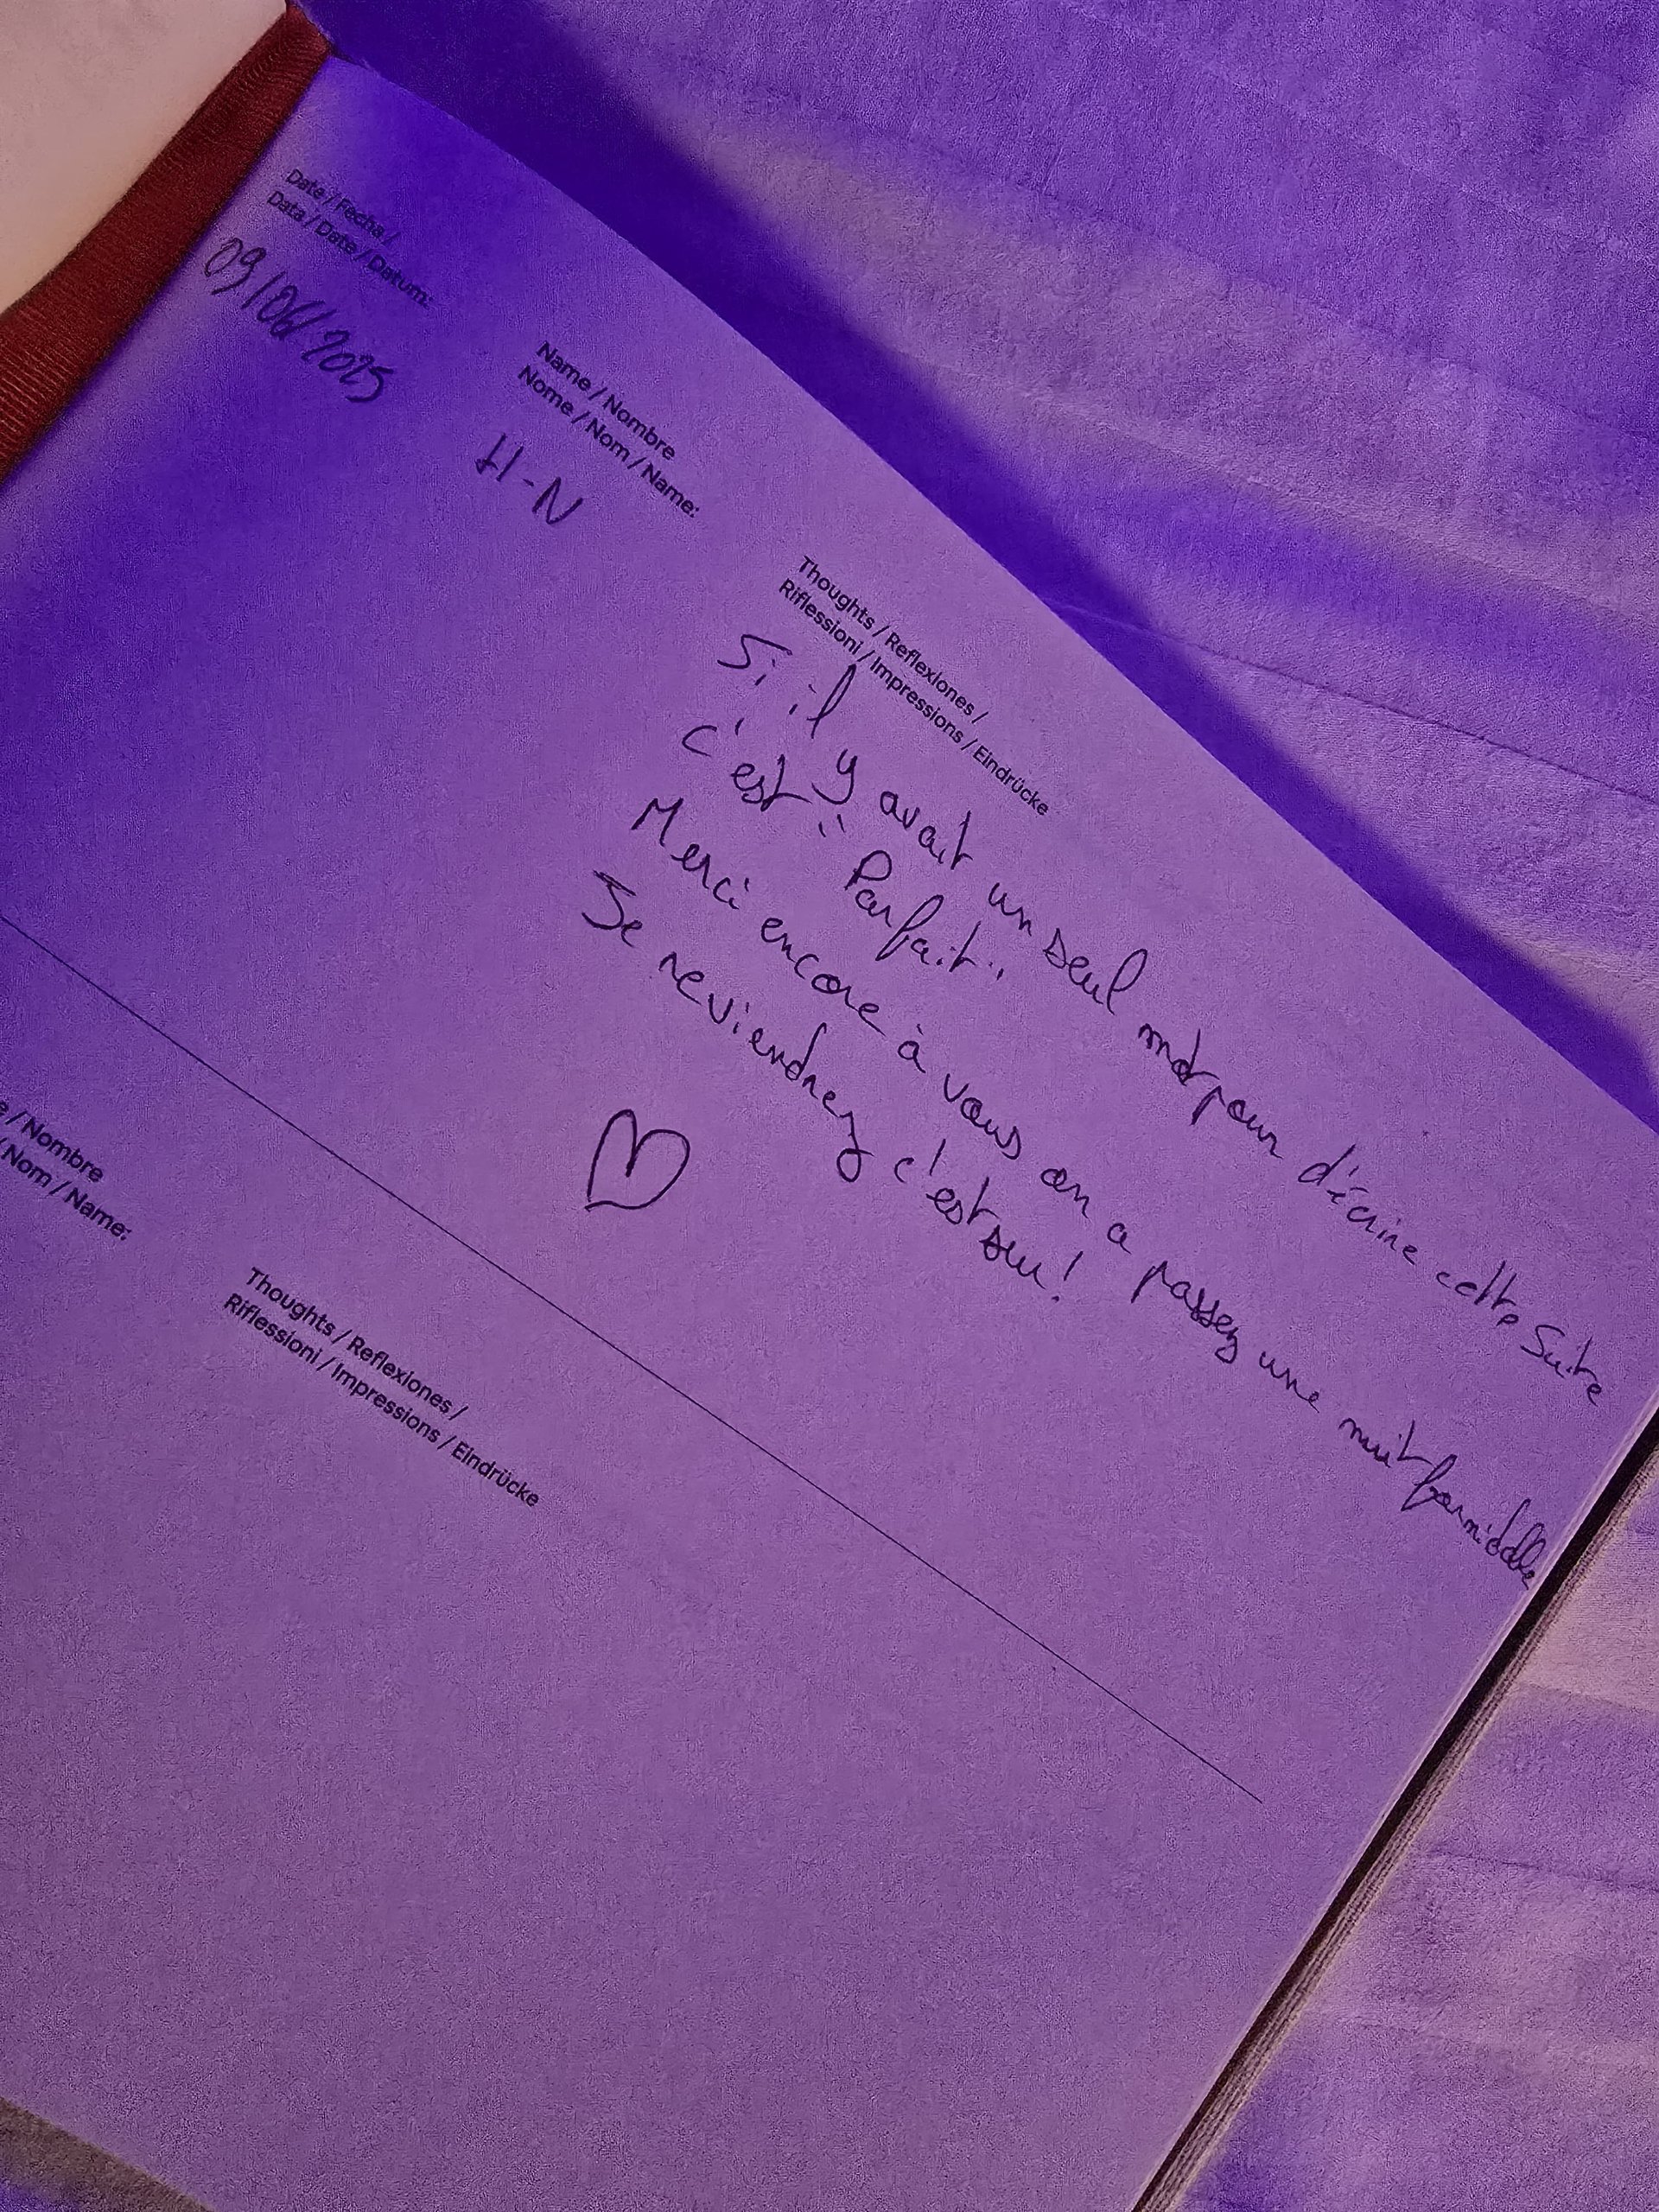 Date / Fecha /
Data / Date / Datum:
09/06/2025
Name / Nombre
Nome / Nom / Name:
H-N
Thoughts / Reflexiones /
Riflessioni / Impressions / Eindrücke
Si il y avait un seul mot pour décrire cette Suite
c'est "Parfait"
Merci encore à vous on a passez une nuit formidable
Je reviendrez c'est sur !
e / Nombre
/ Nom / Name:
Thoughts / Reflexiones /
Riflessioni / Impressions / Eindrücke